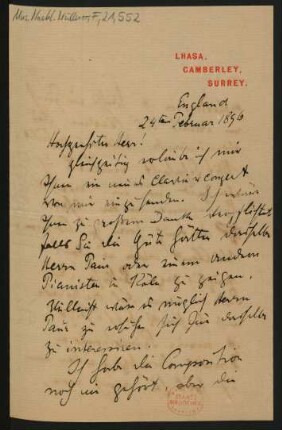 Mus. Nachl. Wüllner, F, 21,552
LHASA,
CAMBERLEY,
SURREY.
England
24ten Februar 1896
Hochgeehrter Herr!
Gleichzeitig erlaube ich mir
Ihnen ein neues Clavierconzert
von mir einzusenden. Ich wäre
Ihnen zu großem Dank verpflichtet
falls Sie die Güte hätten dasselbe
Herrn Paur oder einem andern
Pianisten in Köln zu zeigen.
Vielleicht wäre es möglich Herrn
Paur zu ersuchen sich für dasselbe
zu interessiren.
Ich habe die Composition
noch nie gehört, aber die